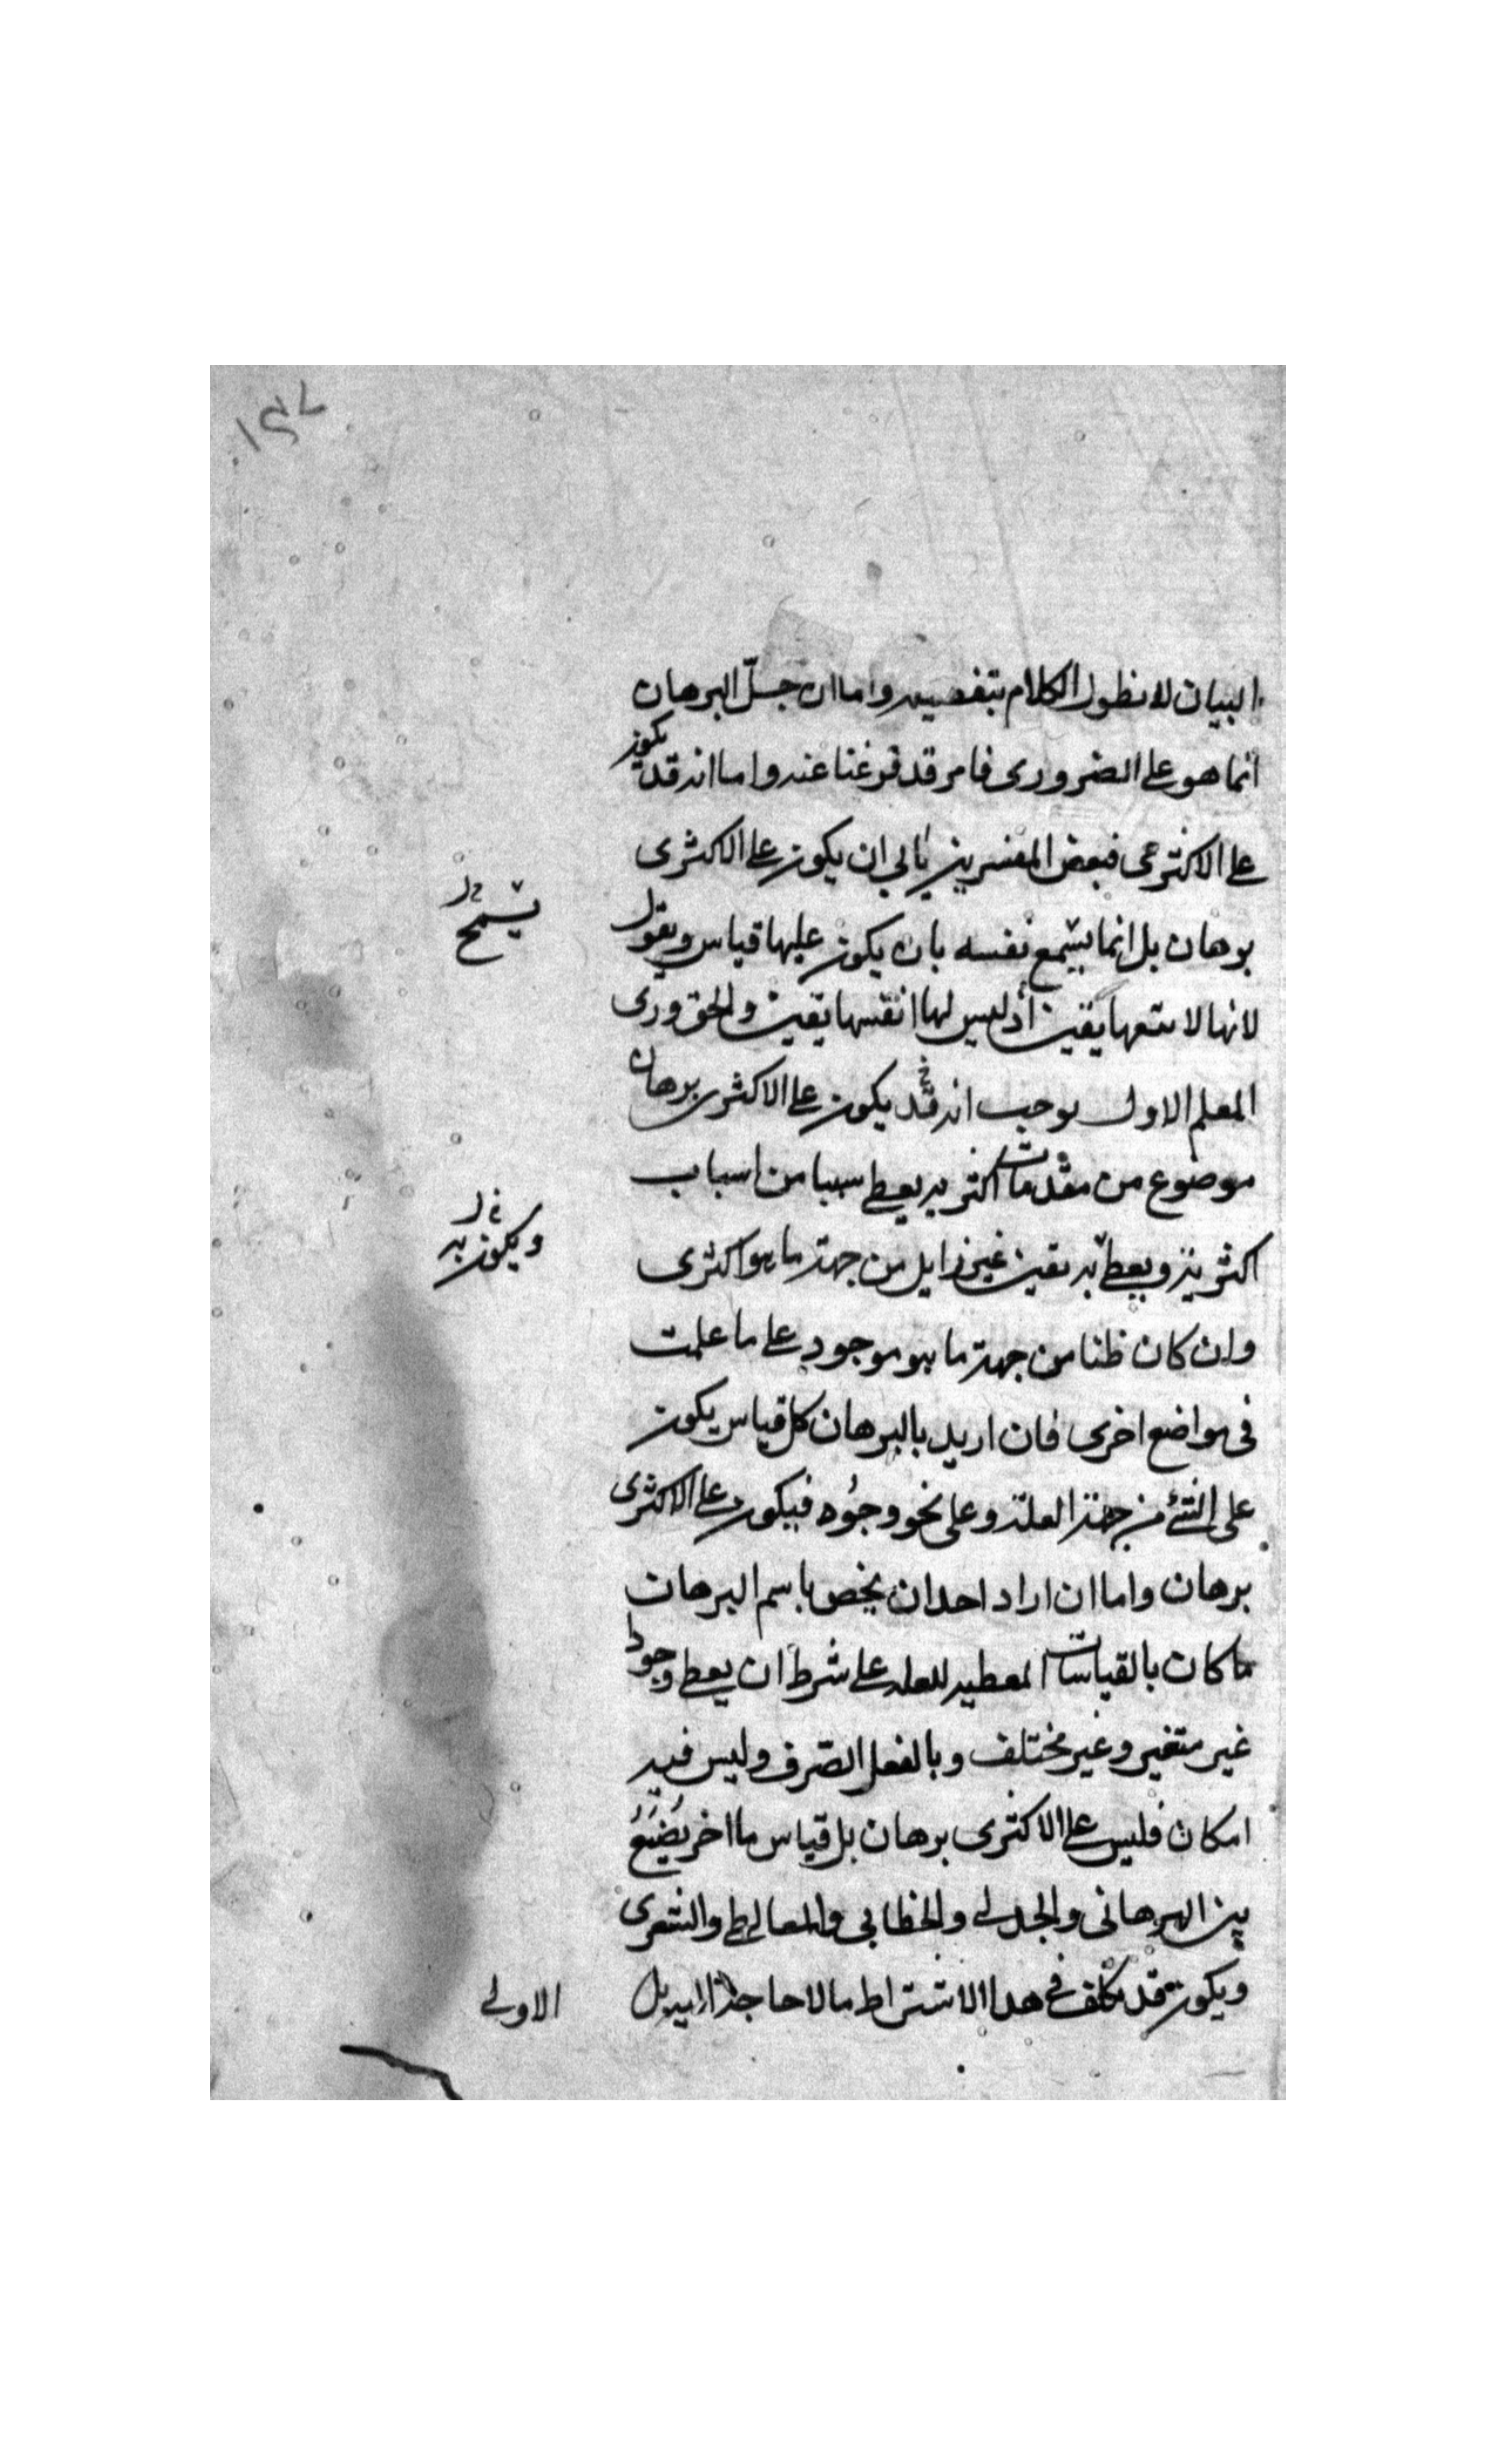 ١٤٧
البيان لا نطول الكلام بتفصيله واما ان جل البرهان
انما هو على الضرورى فامر قد فرغنا عنه واما انه قد يكون
على الاكثرى فبعض المفسرين يأبى ان يكون على الاكثرى
برهان بل انما يشمع نفسه بان يكون عليها قياس ويقول
يشمح
لانها لا يتبعها يقين اذ ليس لها انفسها يقين والحق ورى
المعلم الاول يوجب انه قد يكون على الاكثرى برهان
موضوع من مقدمات اكثريه يعطى سببا من اسباب
اكثرية ويعطى به يقين غير زايل من جهة ما هو اكثرى
ويكون به
وان كان ظنا من جهة ما هو موجود على ما علمت
فى مواضع اخرى فان اريد بالبرهان كل قياس يكون
على الشئ من جهة العلة وعلى نحو وجوده فيكون على الاكثرى
برهان واما ان اراد احد ان يخص باسم البرهان
ما كان بالقياسات المعطيه للعله على شرط ان يعطى وجودا
غير متغير وغير مختلف وبالفعل الصرف وليس فيه
امكان فليس على الاكثرى برهان بل قياس ما اخر يضيع
بين البرهانى والجدلى والخطابى والمغالطى والشعرى
ويكون قد تكلف فى هذا الاشتراط مالا حاجة اليه بل
الاولى